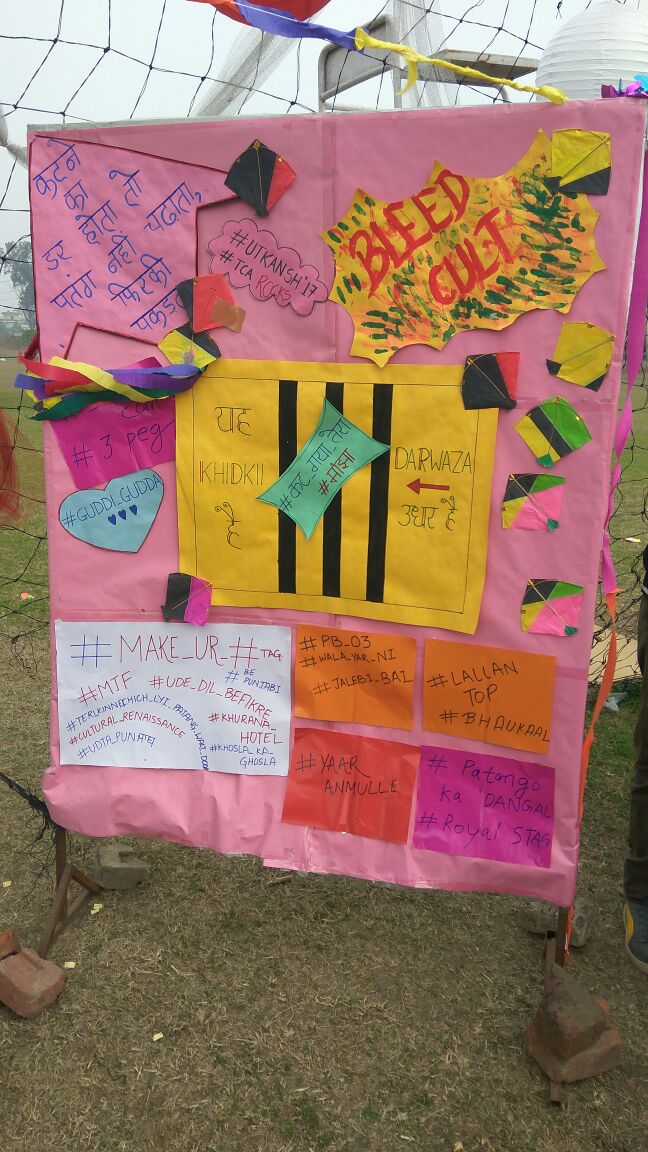 कटने
का
डर होता तो
पतंग नही चढाता,
फिरकी
पकड़
#UTKANSH'17
#TCA ROCKS
BLEED
CULT
# 3 peg
#GUDDI_GUDDA
यह
KHIDKII
है
#कट_गया_तेरा
#मांझा
DARWAZA
उधर है
## MAKE_UR_#TAG:
#MJF #BE PUNJABI
#UDE_DIL_BEFIKRE
#CULTURAL_RENAISSANCE
#KHURANA_
HOTEL
#UDTA_PUNJAB
#KHOSLA_KA_
GHOSLA
#PB_03
#WALA_YAR_NI
#JALEBI_BAI
#LALLAN
TOP
#BHAUKAAL
#YAAR
ANMULLE
# Patango
ka 'DANGAL'
#Royal STAG